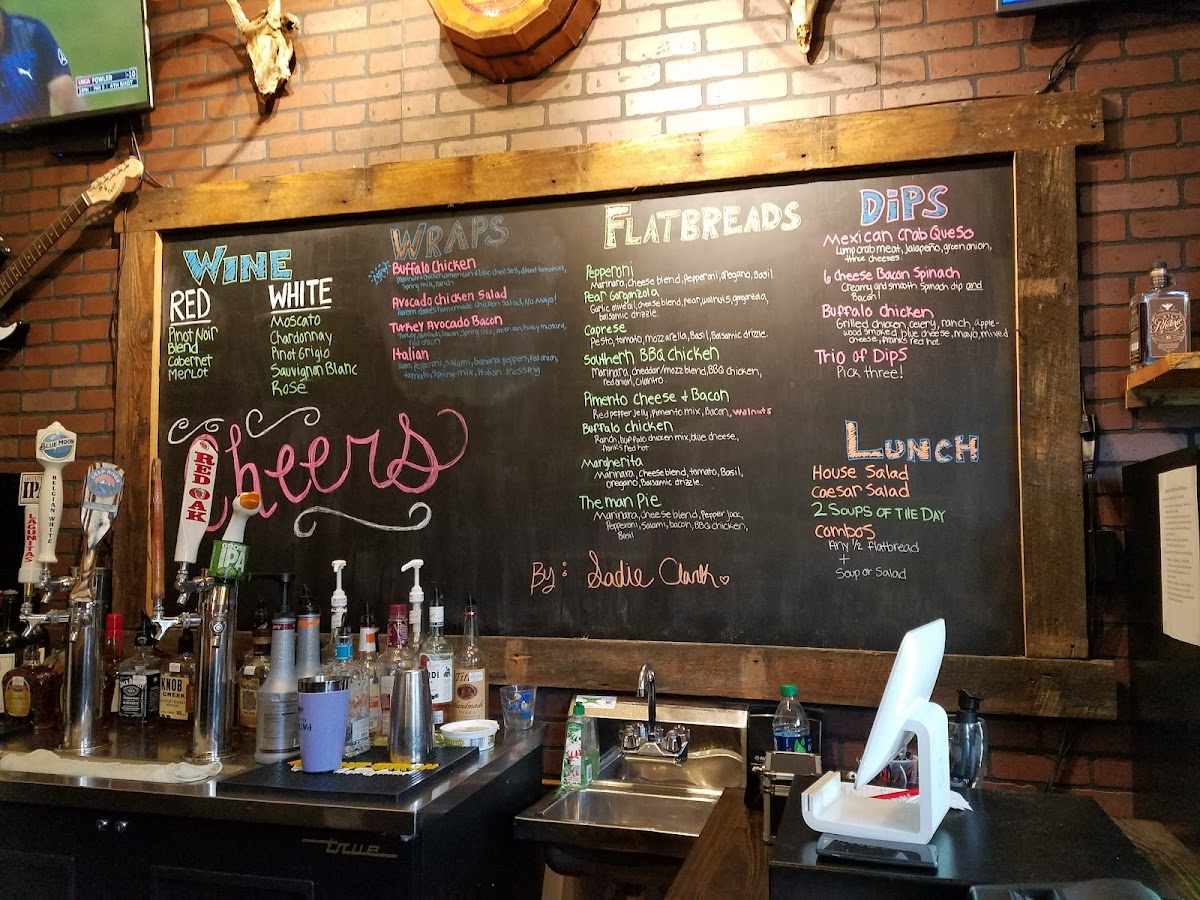 FOWLER
Wine
RED
Pinot Noir
Blend
Cabernet
Merlot
WHITE
Moscato
Chardonnay
Pinot Grigio
Sauvignon Blanc
Rosé
Cheers
WRAPS
Buffalo Chicken
Spring mix, ranch
Avocado Chicken Salad
homemade chicken Salad, No Mayo!
Turkey Avocado Bacon
red onion
Italian
Ham, Pepperoni, Salami, banana peppers, red onion,
tomato, Spring mix, Italian dressing
FLATBREADS
Pepperoni
Marinara, cheese blend, Pepperoni, oregano, Basil
Pear Gorgonzola
Garlic olive oil, cheese blend, pear, walnuts, gorgonzola,
balsamic drizzle.
Caprese
Pesto, tomato, mozzarella, Basil, Balsamic drizzle.
Southern BBQ chicken
Marinara, cheddar/mozz blend, BBQ chicken,
red onion, cilantro.
Pimento Cheese & Bacon
Red pepper jelly, Pimento mix, Bacon, walnuts
Buffalo chicken
Ranch, buffalo chicken mix, blue cheese,
franks red hot.
Margherita
Marinara, cheese blend, tomato, Basil,
oregano, Balsamic drizzle.
The man Pie
Marinara, cheese blend, Pepper jack,
Pepperoni, Salami, bacon, BBQ chicken,
Basil
By: Sadie Clark
DiPS
Mexican Crab Queso
Lump crab meat, Jalapeño, green onion,
three cheeses.
6 Cheese Bacon Spinach
Creamy and smooth Spinach dip and
Bacon!
Buffalo chicken
Grilled chicken, celery, ranch, apple-
wood smoked blue cheese, mayo, mixed
cheese, franks red hot.
Trio of Dips
Pick three!
LUNCH
House Salad
Caesar Salad
2 SOUPS OF THE DAY
Combos
Any 1/2 flatbread
+
Soup or Salad
BLUE MOON
BELGIAN WHITE
IPA
LAGUNITAS
RED OAK
IPA
KNOB
CREEK
Tito's
Handmade
true